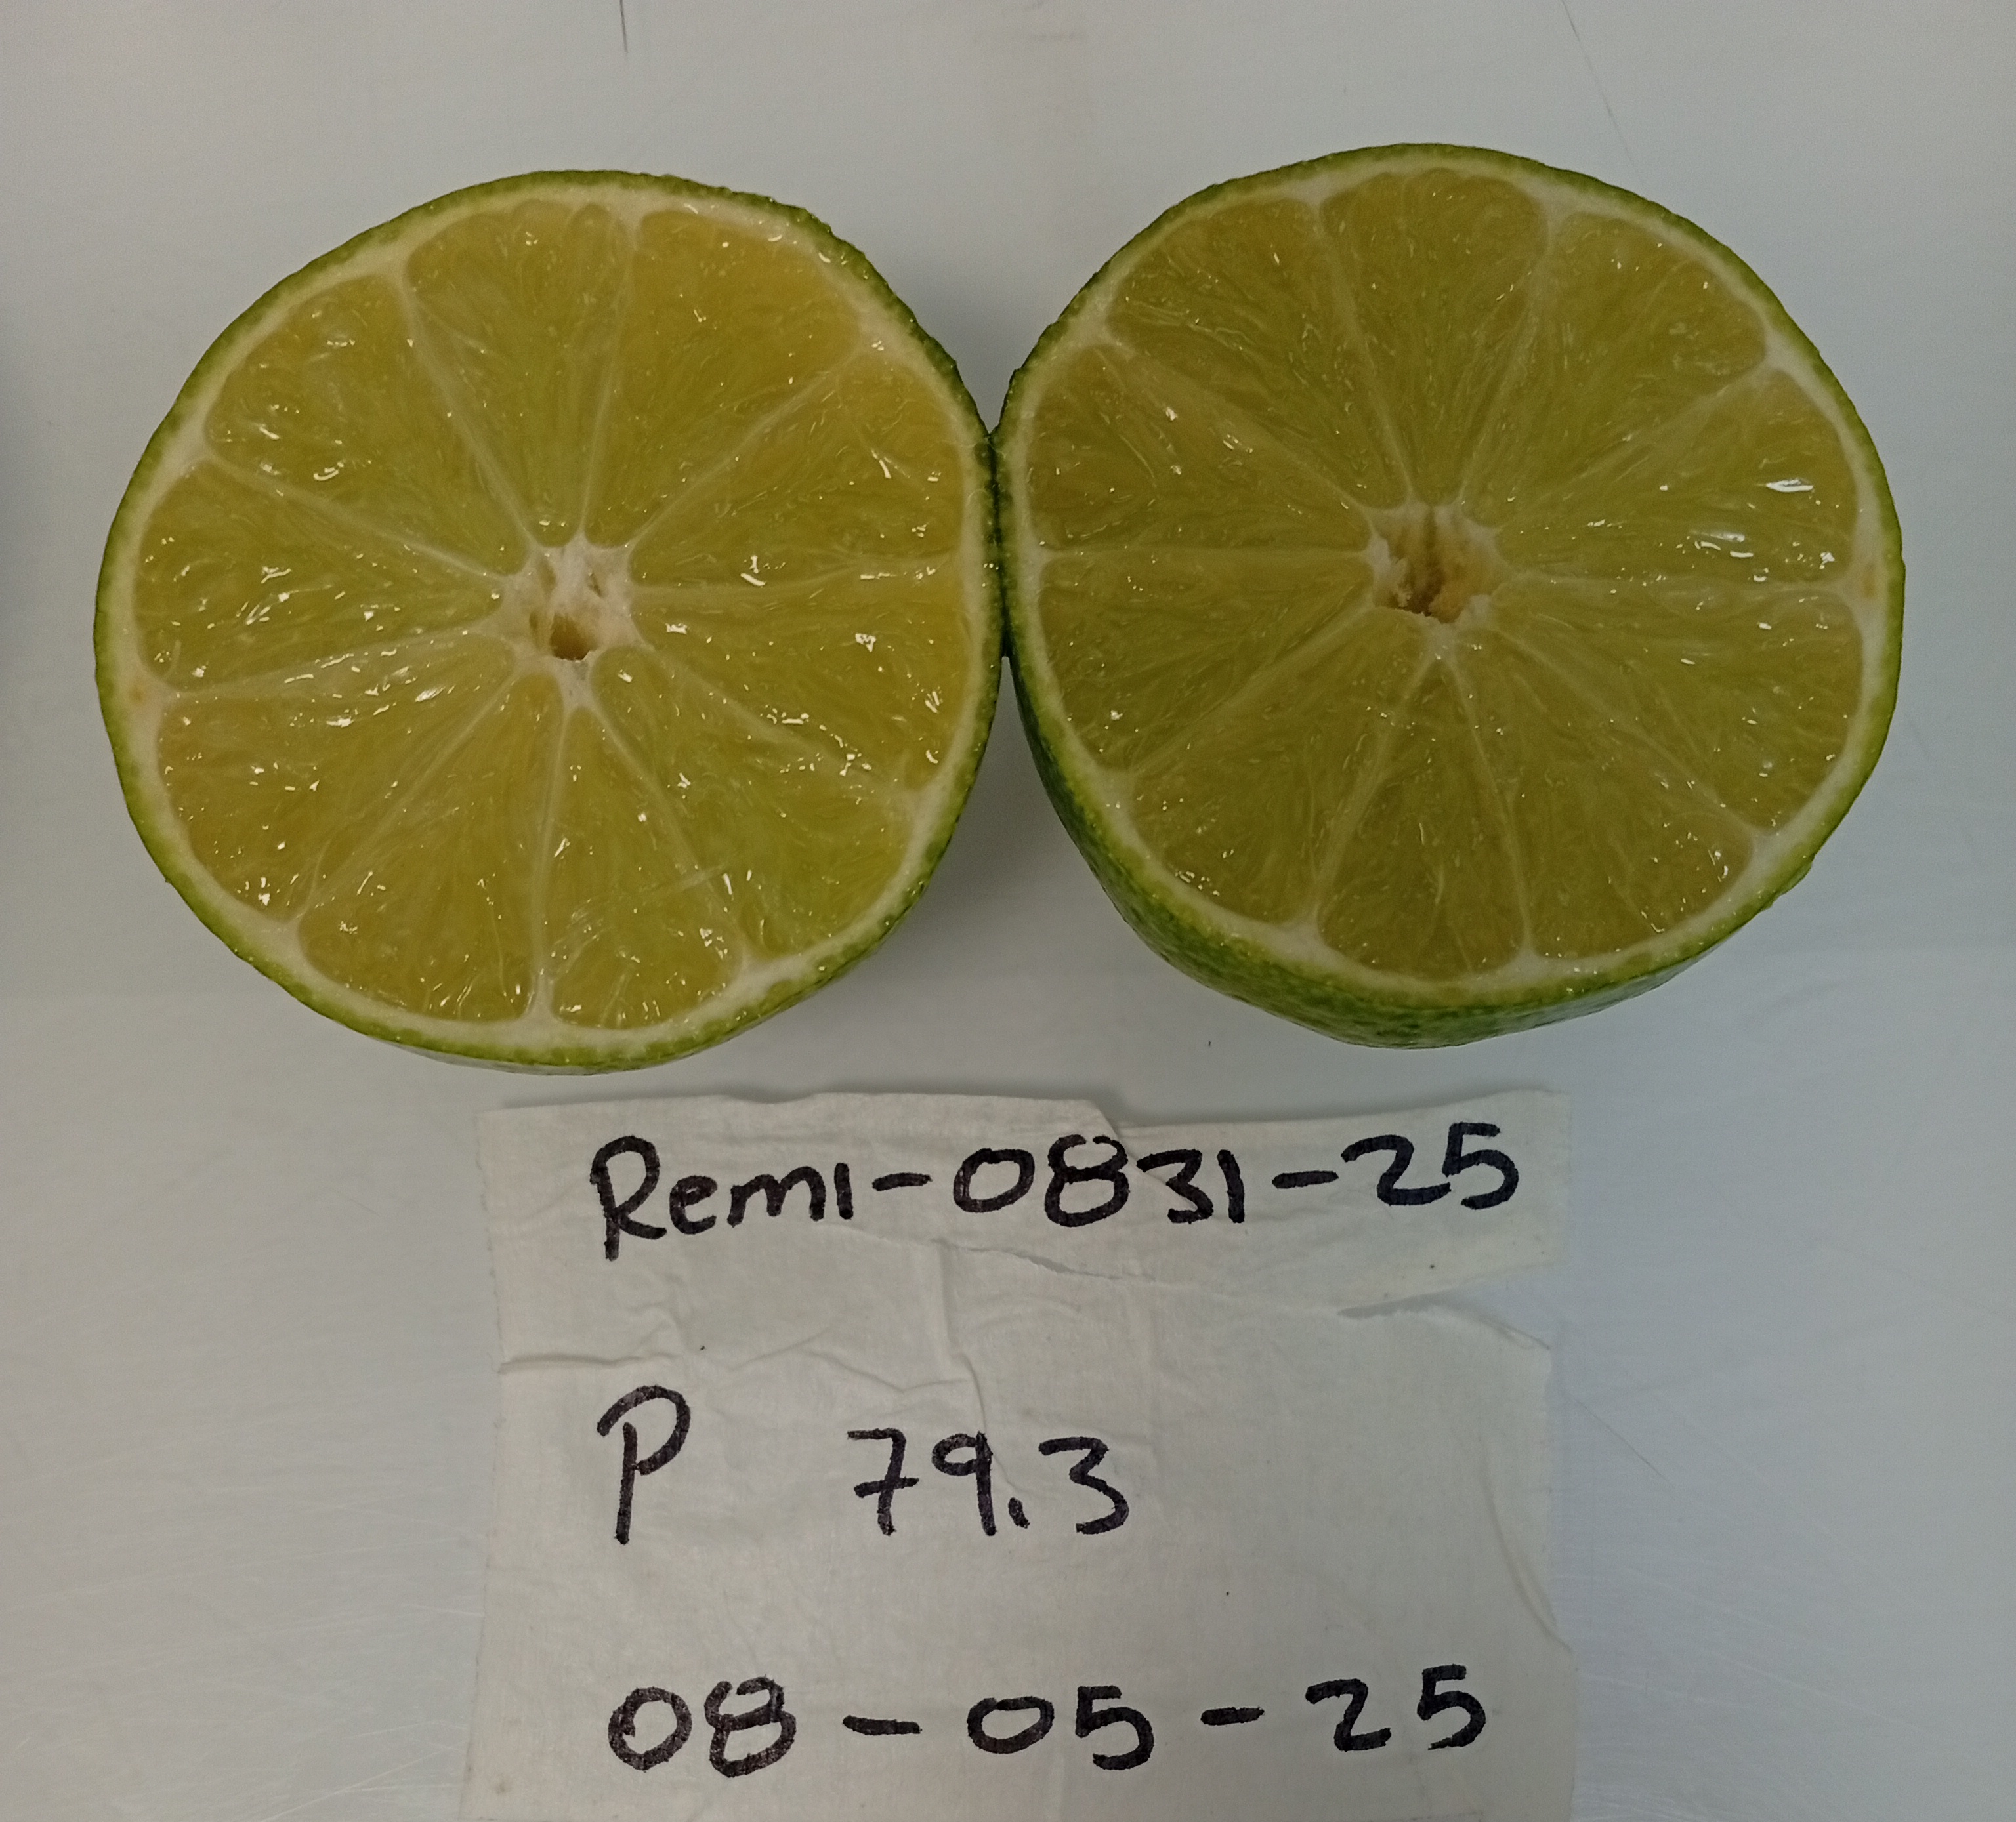 Remi-0831-25
P 79.3
08-05-25